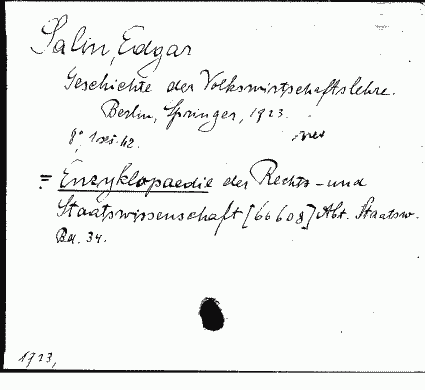 Salin, Edgar
Geschichte der Volkswirtschaftslehre.
Berlin, Springer, 1923.
8°,
= Enzyklopaedie der Rechts- und
Staatswissenschaft [66608] Abt. Staatsw.
Bd. 34.
1923,